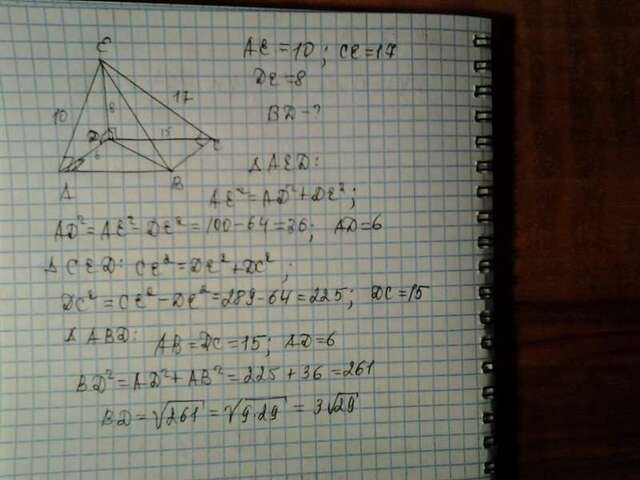 E
AE = 10 ; CE = 17
DE = 8
BD - ?
10
8
17
D
15
C
6
A
B
Δ AED :
AE² = AD² + DE² ;
AD² = AE² - DE² = 100 - 64 = 36 ; AD = 6
Δ CED : CE² = DE² + DC² ;
DC² = CE² - DE² = 289 - 64 = 225 ; DC = 15
Δ ABD : AB = DC = 15 ; AD = 6
BD² = AD² + AB² = 225 + 36 = 261
BD = √261 = √9·29 = 3√29